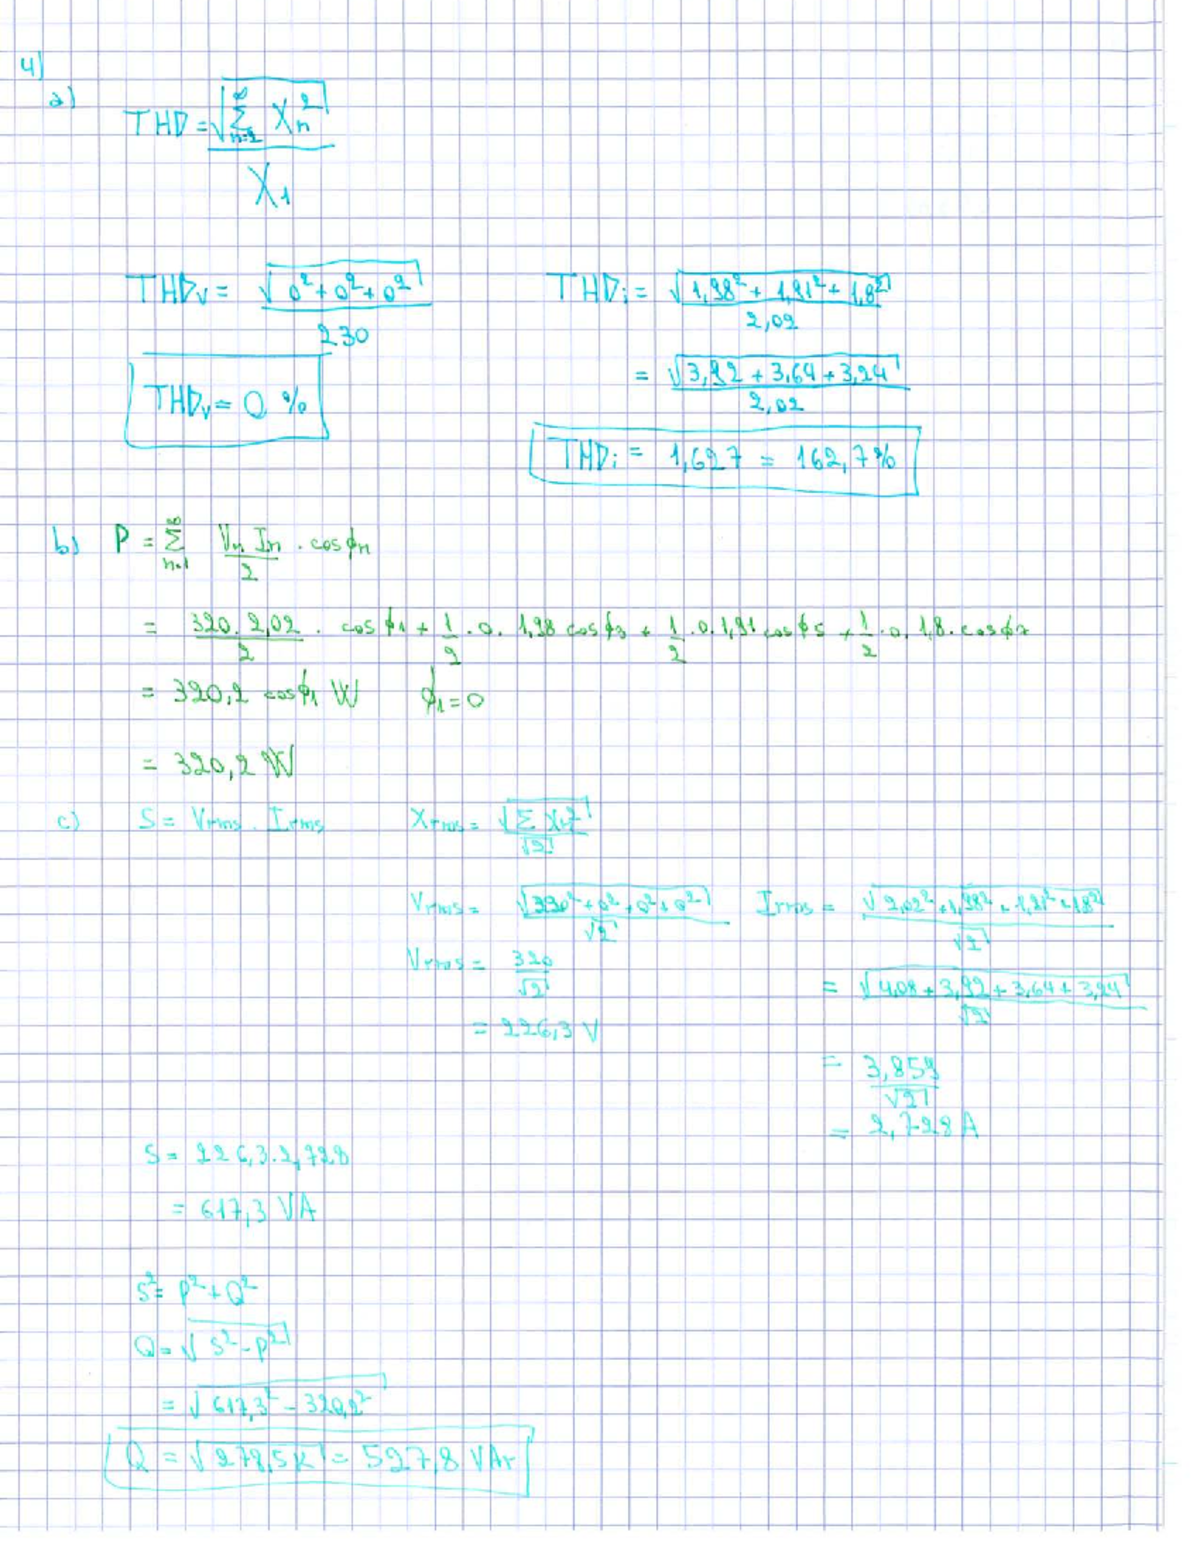 4)
a)
THD = √(∑_{n=2}^{∞} X_n²) / X_1
THD_v = √(0² + 0² + 0²) / 230
THD_v = 0 %
THD_i = √(1,98² + 1,91² + 1,8²) / 2,02
= √(3,92 + 3,64 + 3,24) / 2,02
THD_i = 1,627 = 162,7%
b) P = ∑_{n=1}^{∞} V_n I_n / 2 · cos φ_n
= 320 · 2,02 / 2 · cos φ_1 + 1/2 · 0 · 1,98 cos φ_3 + 1/2 · 0 · 1,91 cos φ_5 + 1/2 · 0 · 1,8 · cos φ_7
= 320,2 cos φ_1 W φ_1 = 0
= 320,2 W
c) S = V_rms · I_rms X_rms = √(∑ X_n²) / √2
V_rms = √(330² + 0² + 0² + 0²) / √2
V_rms = 320 / √2
= 226,3 V
I_rms = √(2,02² + 1,98² + 1,91² + 1,8²) / √2
= √(4,08 + 3,92 + 3,64 + 3,24) / √2
= 3,859 / √2
= 2,728 A
S = 226,3 · 2,728
= 617,3 VA
S² = P² + Q²
Q = √(S² - P²)
= √(617,3² - 320,2²)
Q = √(278,5K) = 527,8 VAr